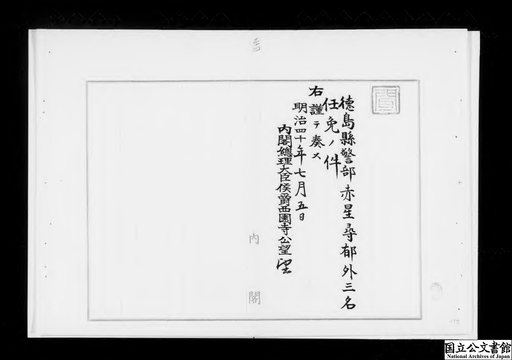 徳島縣警部赤星尋郁外三名
任免ノ件
右謹テ奏ス
明治四十年七月五日
内閣總理大臣侯爵西園寺公望
内閣
国立公文書館
National Archives of Japan